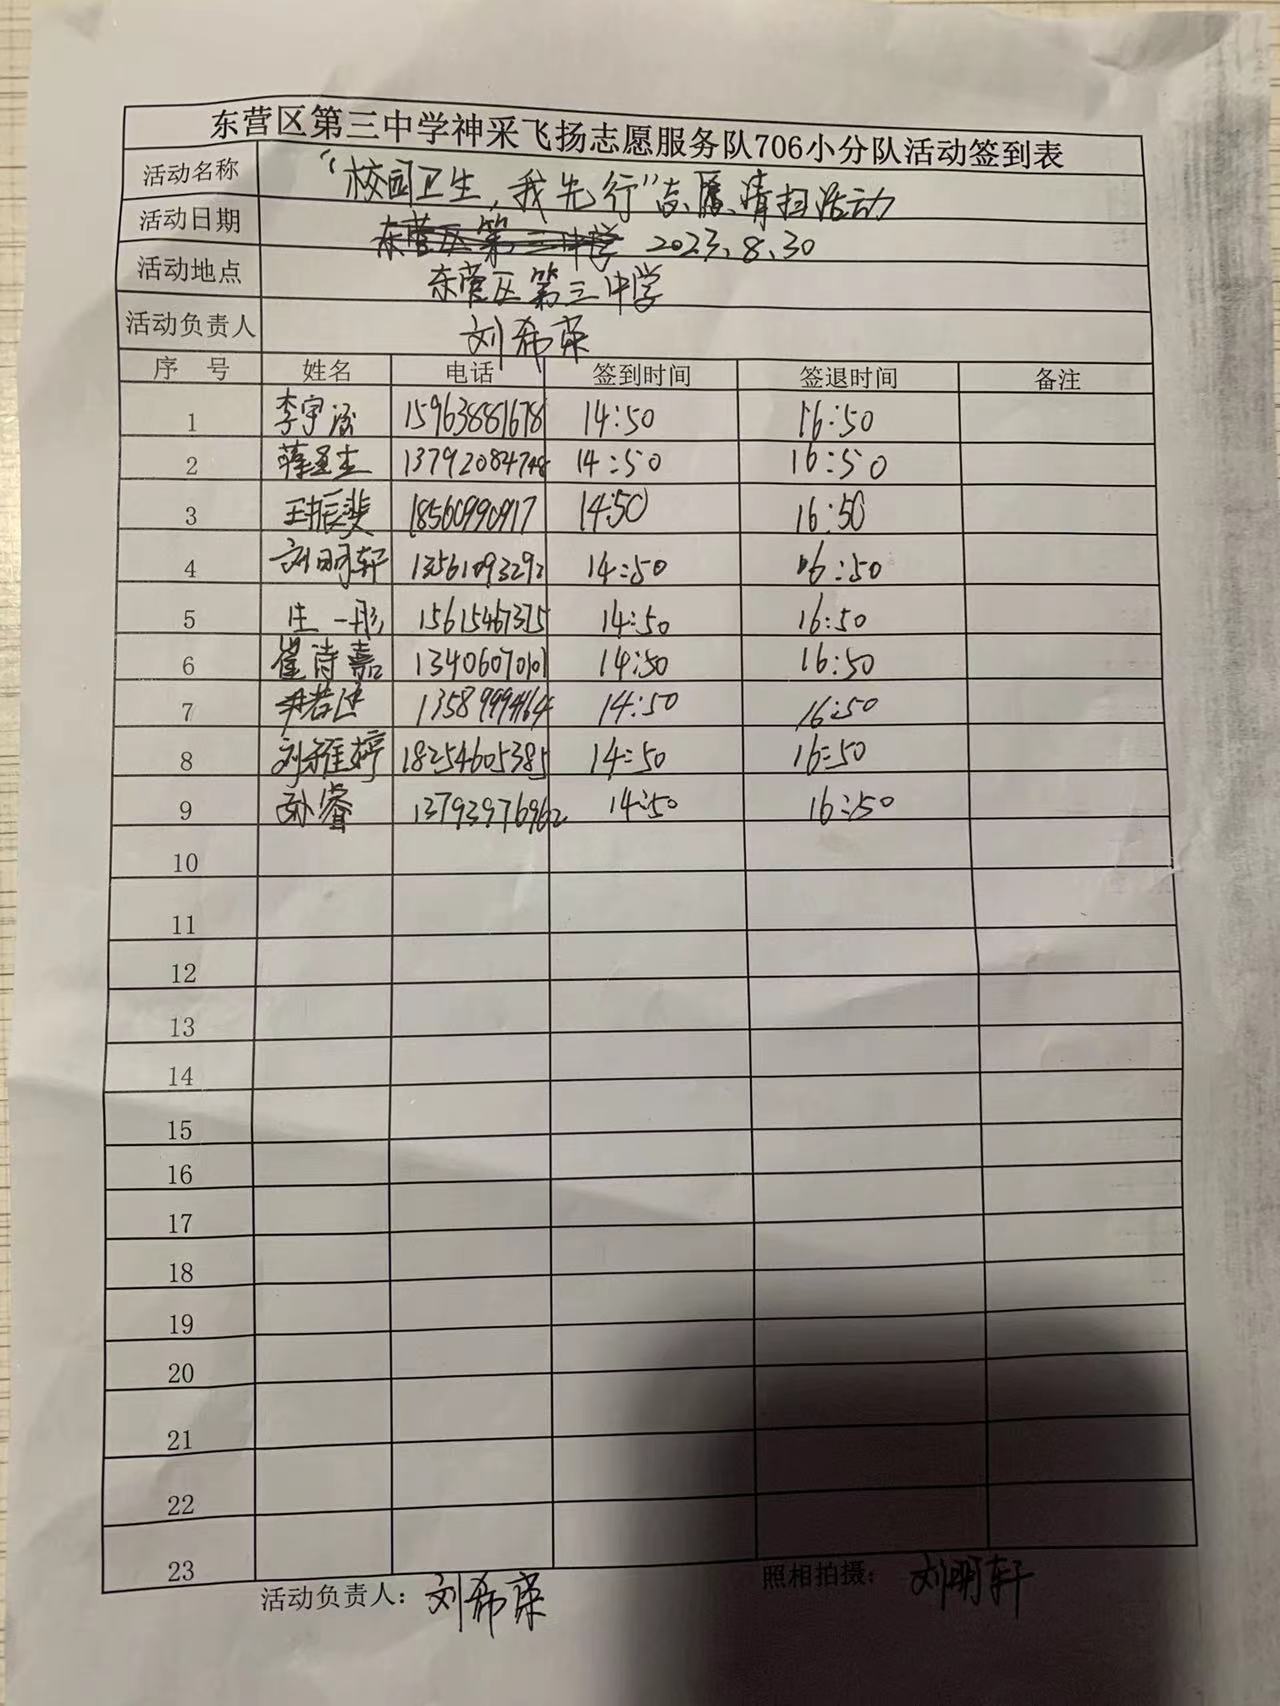 东营区第三中学神采飞扬志愿服务队706小分队活动签到表
活动名称 “校园卫生,我先行”志愿清扫活动
活动日期 东营区第三中学 2023.8.30
活动地点 东营区第三中学
活动负责人 刘希荣
序 号 姓名 电话 签到时间 签退时间 备注
1 李宇涵 15963881678 14:50 16:50
2 13792084748 14:50 16:50
3 王振斐 18560990917 14:50 16:50
4 刘明轩 13561093292 14:50 16:50
5 庄一彤 15615467375 14:50 16:50
6 崔诗嘉 13406070101 14:50 16:50
7 14:50 16:50
8 刘雅婷 18254605385 14:50 16:50
9 孙睿 13793976962 14:50 16:50
10
11
12
13
14
15
16
17
18
19
20
21
22
23
活动负责人: 刘希荣 照相拍摄: 刘明轩